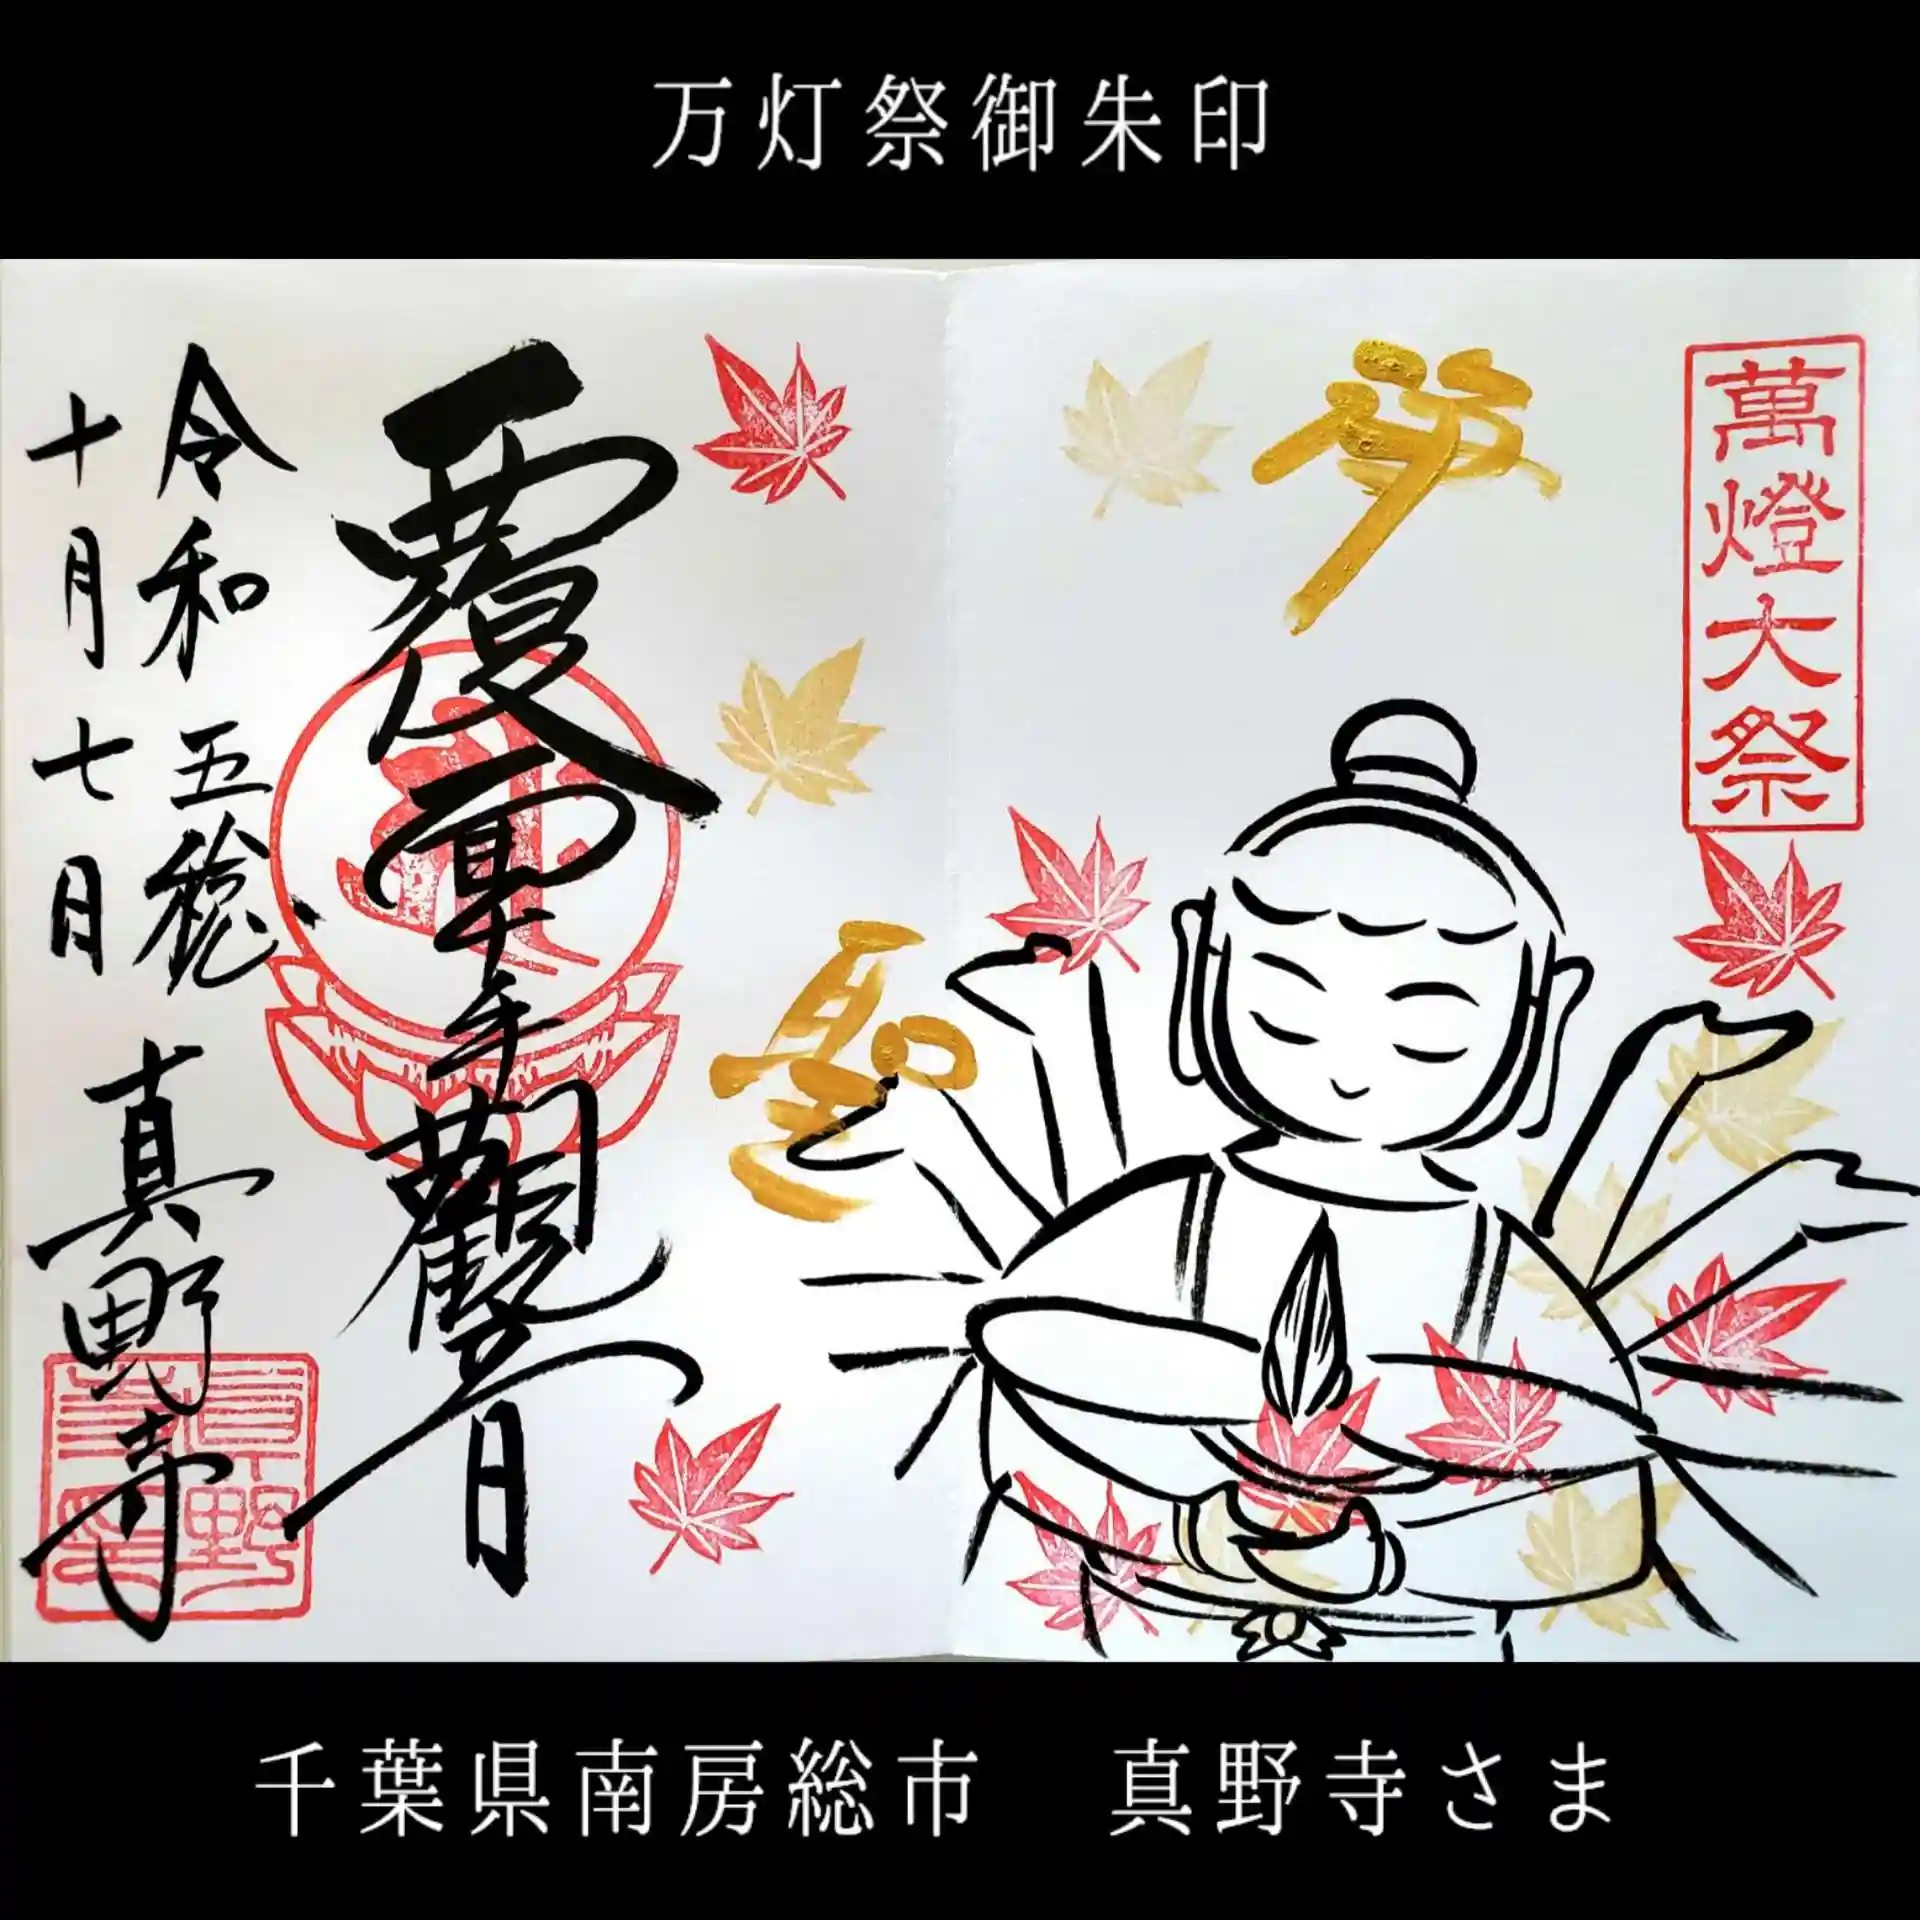 万灯祭御朱印
萬燈大祭
聖
覆面千手觀音
令和五稔
十月七日
真野寺
千葉県南房総市　真野寺さま